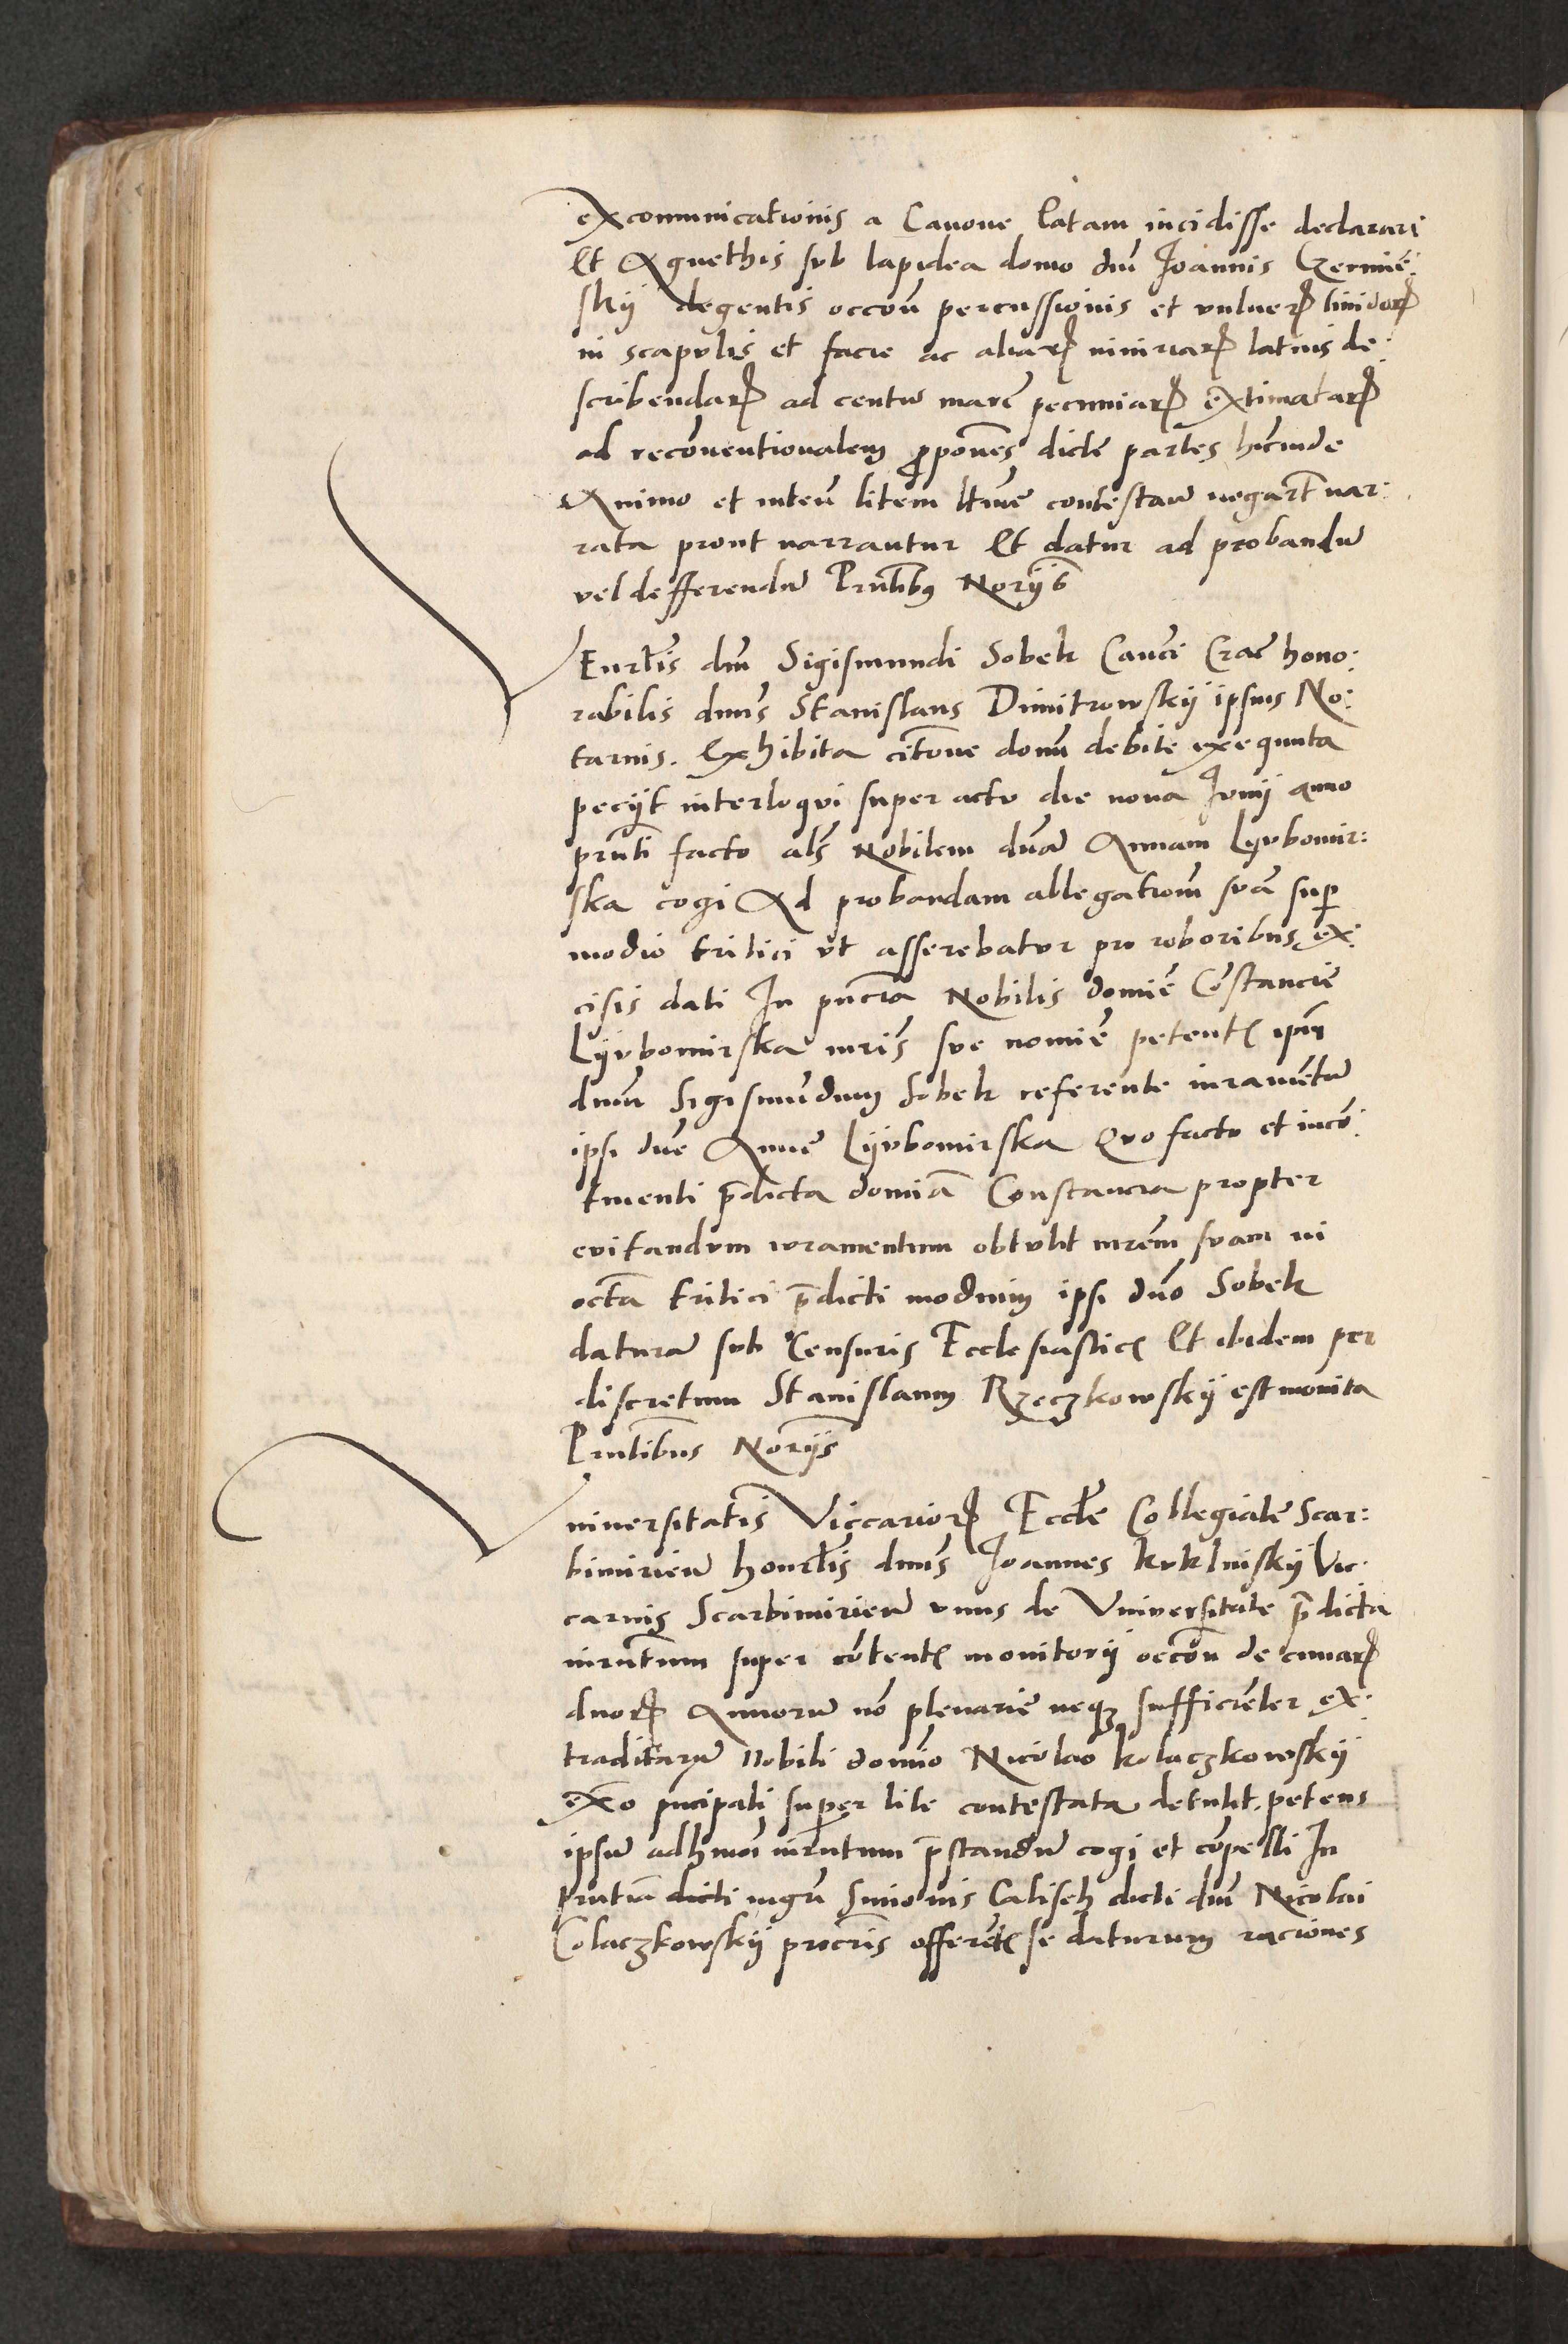 excomunicationis a Canone latam incidisse declarari
Et Agnethis sub lapidea domo dni Joannis Czermie:
skij degentis occon percussionis et vulnerꝝ liuidorꝝ
in scapulis et facie ac aliarꝝ iniuriarꝝ latius de:
scribendarꝝ ad centu marc pecuniarꝝ extimatarꝝ
ad reconuentionalem ꝓponens dicte partes hincinde
Animo et inten litem ltime contestan negart nar:
rata prout narrantur Et datur ad probandu
vel defferendu Pntibus Norijs
Eurlis dni Sigismundi Sobek Canci Crac hono:
rabilis dnus Stanislaus Dimitrowskij ipsius No:
tarius. Exhibita citone donu debite exequuta
pecijt interloqui super actu die nona Junij anno
prnti facto als Nobilem dnam Annam Lyubomir:
ska cogi Ad probandam allegationem sua super
modio tritici ut asserebatur pro roboribus ex:
cisis dati In pncia Nobilis domie Constancie
Lijubomirska mris sue nomie petente ipm
dnum Sigismundum Sobek referente iuramentu
ipsi dne Anne Lijubomirska Quo facto et inco:
tinenti p̄dicta domia Constancia propter
euitandum iuramentum obtulit mrem suam in
octa tritici p̄dicti modium ipsi dno Sobek
datura sub Censuris Ecclesiastic Et ibidem per
discretum Stanislaum Rzeczkowskij est monita
Prntibus Norijs
niuersitatis Viccariorꝝ Eccle Collegiate Scar:
bimirien honrlis dnus Joannes kuklinskij Vic:
carius Scarbimirien vnus de Vniuersitate p̄dicta
iurntum super cotent monitorij occon decimarꝝ
duorꝝ Annoru no plenarie neqꝫ sufficienter ex:
traditaru Nobili domino Nicolao kolaczkowskij
exo pncipali super lite contestata detulit. petens
ipsu adhmoi iurntum p̄standu cogi et copelli In
prntia dicti mgri Simonis Calisch dicti dni Nicolai
Colaczkowskij procris offerent se daturum raciones